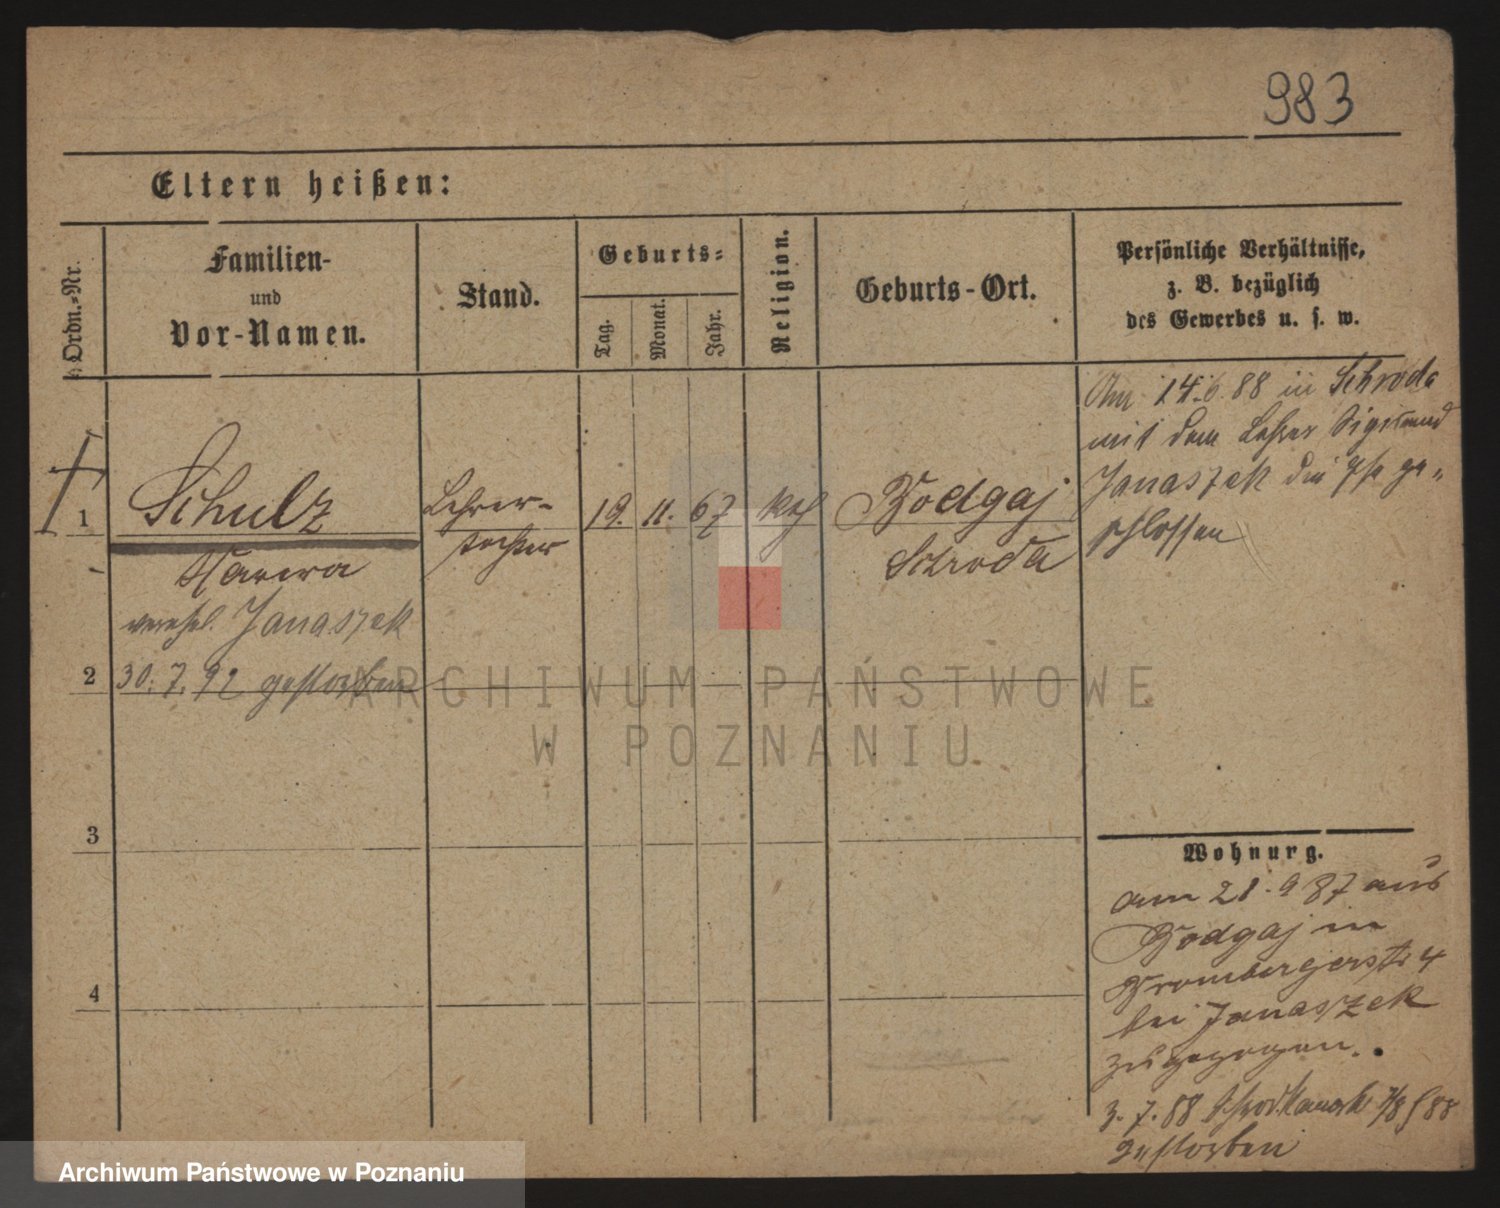 983
Eltern heißen:
Ordn.-Nr.
Familien-
und
Vor-Namen.
Stand.
Geburts-
Tag.
Monat.
Jahr.
Religion.
Geburts-Ort.
Persönliche Verhältnisse,
z. B. bezüglich
des Gewerbes u. s. w.
Am 14.6.88 in Schroda
mit dem Lehrer Sigismund
Janaszek die Ehe ge-
schlossen
1
Schulz
Lehrer-
tochter
19. 11. 67
kath
Bodgaj
Schroda
verehel. Janaszek
2
30.7.92 gestorben
3
4
Wohnurg.
am 28.9 87 aus
Bodgaj in
Brombergerstr 4
bei Janaszek
zugezogen.
3.7.88 88
gestorben
ARCHIWUM PAŃSTWOWE
W POZNANIU
Archiwum Państwowe w Poznaniu